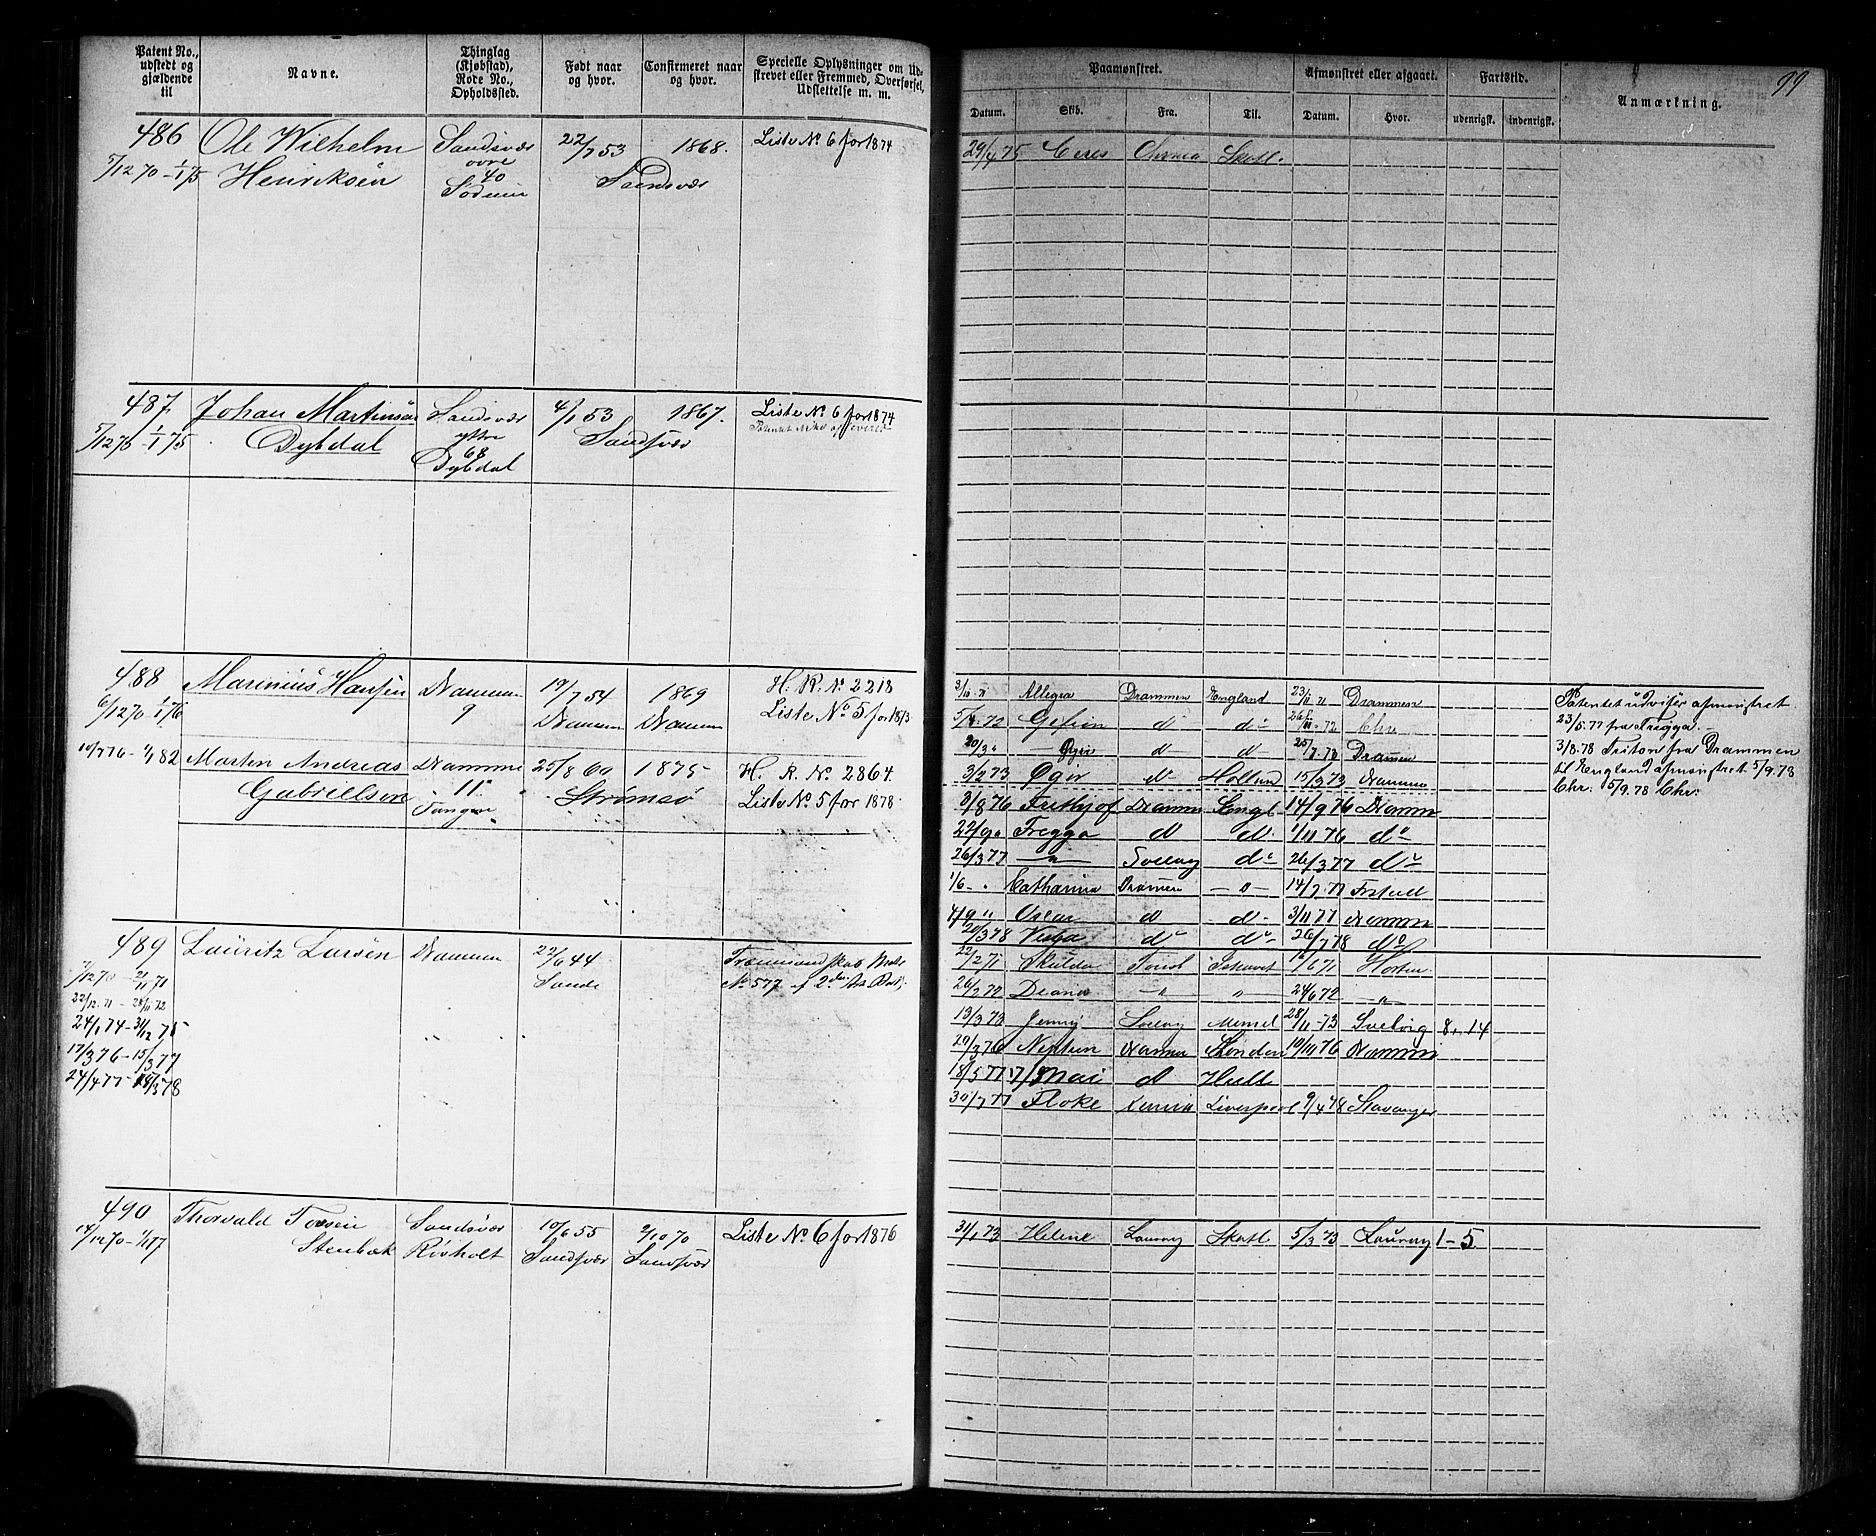 Patent No., udstedt og gjældende til
Navne.
Thinglag (Kjøbstad), Rode No., Opholdssted.
Født naar og hvor.
Confirmeret naar og hvor.
Specielle Oplysninger om Udstrevet eller Fremmed, Overførsel, Udslettelse m. m.
Paamønstret.
Afmønstret eller afgaaet.
Fartstid.
Anmærkning.
99
Datum. Skib. Fra. Til. Datum. Hvor. udenrigsk. indenrigsk.
486 Ole Wilhelm Sandsvær 22/7 53 1868. Liste No 6 for 1874
5/12 70 – 1/1 75 Henriksen øvre 40 Sandsvær
29/4 75 Ceres Skotl.
487. Johan Martinsen Sandsvær 4/1 53 1867. Liste No 6 for 1874
5/12 70 – 1/1 75 Dybdal ytre 68 Dybdal Sandsvær
488 Marinius Hansen Drammen 9 19/7 54 Drammen 1869 Drammen H. R. No 2218
6/12 70 – 1/1 76 Liste No 5 for 1873
10/7 76 – 1/1 82 Martin Andreas Gabrielsen Drammen 11. Tangen 25/8 60 Strømsø 1875 H. R. No 2864.
Liste No 5 for 1878
3/10 71 Allegra Drammen England 23/11 71 Drammen
5/4 72 Gefion d d 72 Chra
d d 25/7 73 Dramen
3/2 73 Øgir d Holland 15/3 73 Drammen
3/8 76 Frithjof Drammen Engl 14/9 76 Drammen
22/9 Fregga d d 1/11 76 do
26/3 77 — " — Svelvig do 26/3 77 do
1/6 - " Catharina Dramen — " — 14/7 77 Frstad
4/9 " Oscar d d 3/11 77 Drammen
20/3 78 Vesta do do 26/7 78 do
Patentet udviser afmønstret
23/5. 77 fra Fregga.
3/8. 78 Triton fra Drammen
til England afmønstret 5/9. 78
Chr. 5/9. 78 Chr:
489 Lauritz Larsen Drammen 22/6 44 Sande
No 577
24/1 74 – 31/12 75
17/3 76 – 15/3 77
24/4 77 – 18/5 78
22/2 71 Skulda 71 Horten
26/2 72 Diana — " — " 24/6 72 — " —
13/3 73 Jenny Svelvig Memel 28/11 73 Svelvig 8, 14
29/3 76 Neptun Drammen London 19/10 76 Drammen
18/5 77 17/Mai d Hull
30/7 77 Floke Liverpool 9/4 78 Stavanger
490 Thorvald Torsen Sandsvær 10/6 55 2/10 70 Liste No 6 for 1876
14/12 70 – 1/1 77 Stenbæk Rivholt Sandsvær Sandsvær
31/1 73 Helene Laurvig Skotl 5/3 73 Laurvig 1 – 5